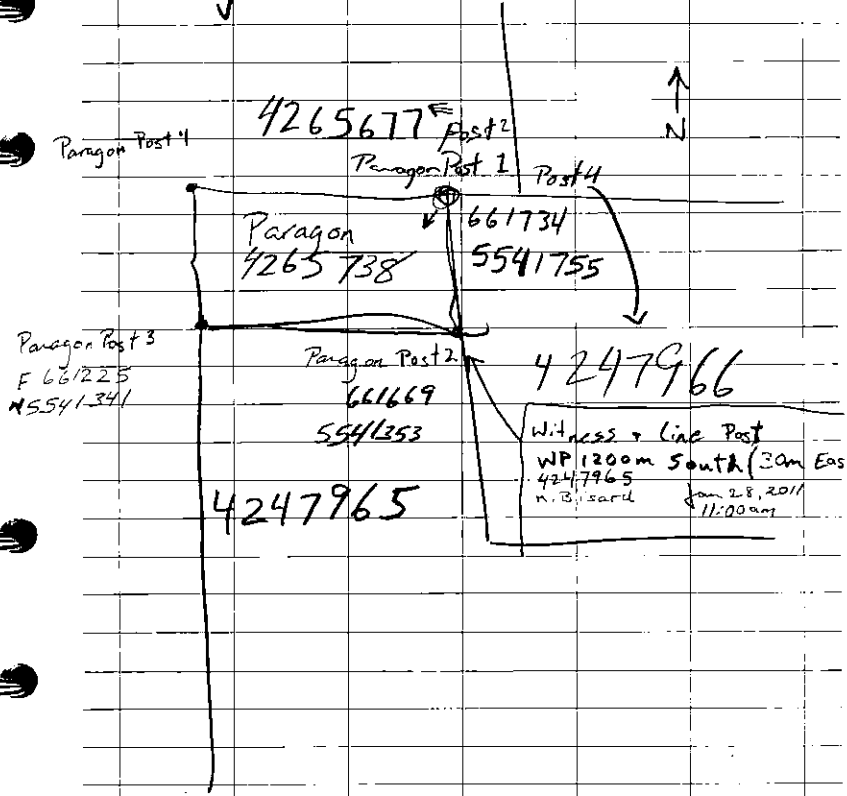 4265677
Post 2
Paragon Post 4
Paragon Post 1
Post 4
N
661734
5541755
Paragon
4265738
Paragon Post 3
F 661225
N 5541341
Paragon Post 2
661669
5541353
4247966
Witness & Line Post
WP 1200m South (30m Eas
4247965
N. Bisard
Jan 28, 2011
11:00am
4247965